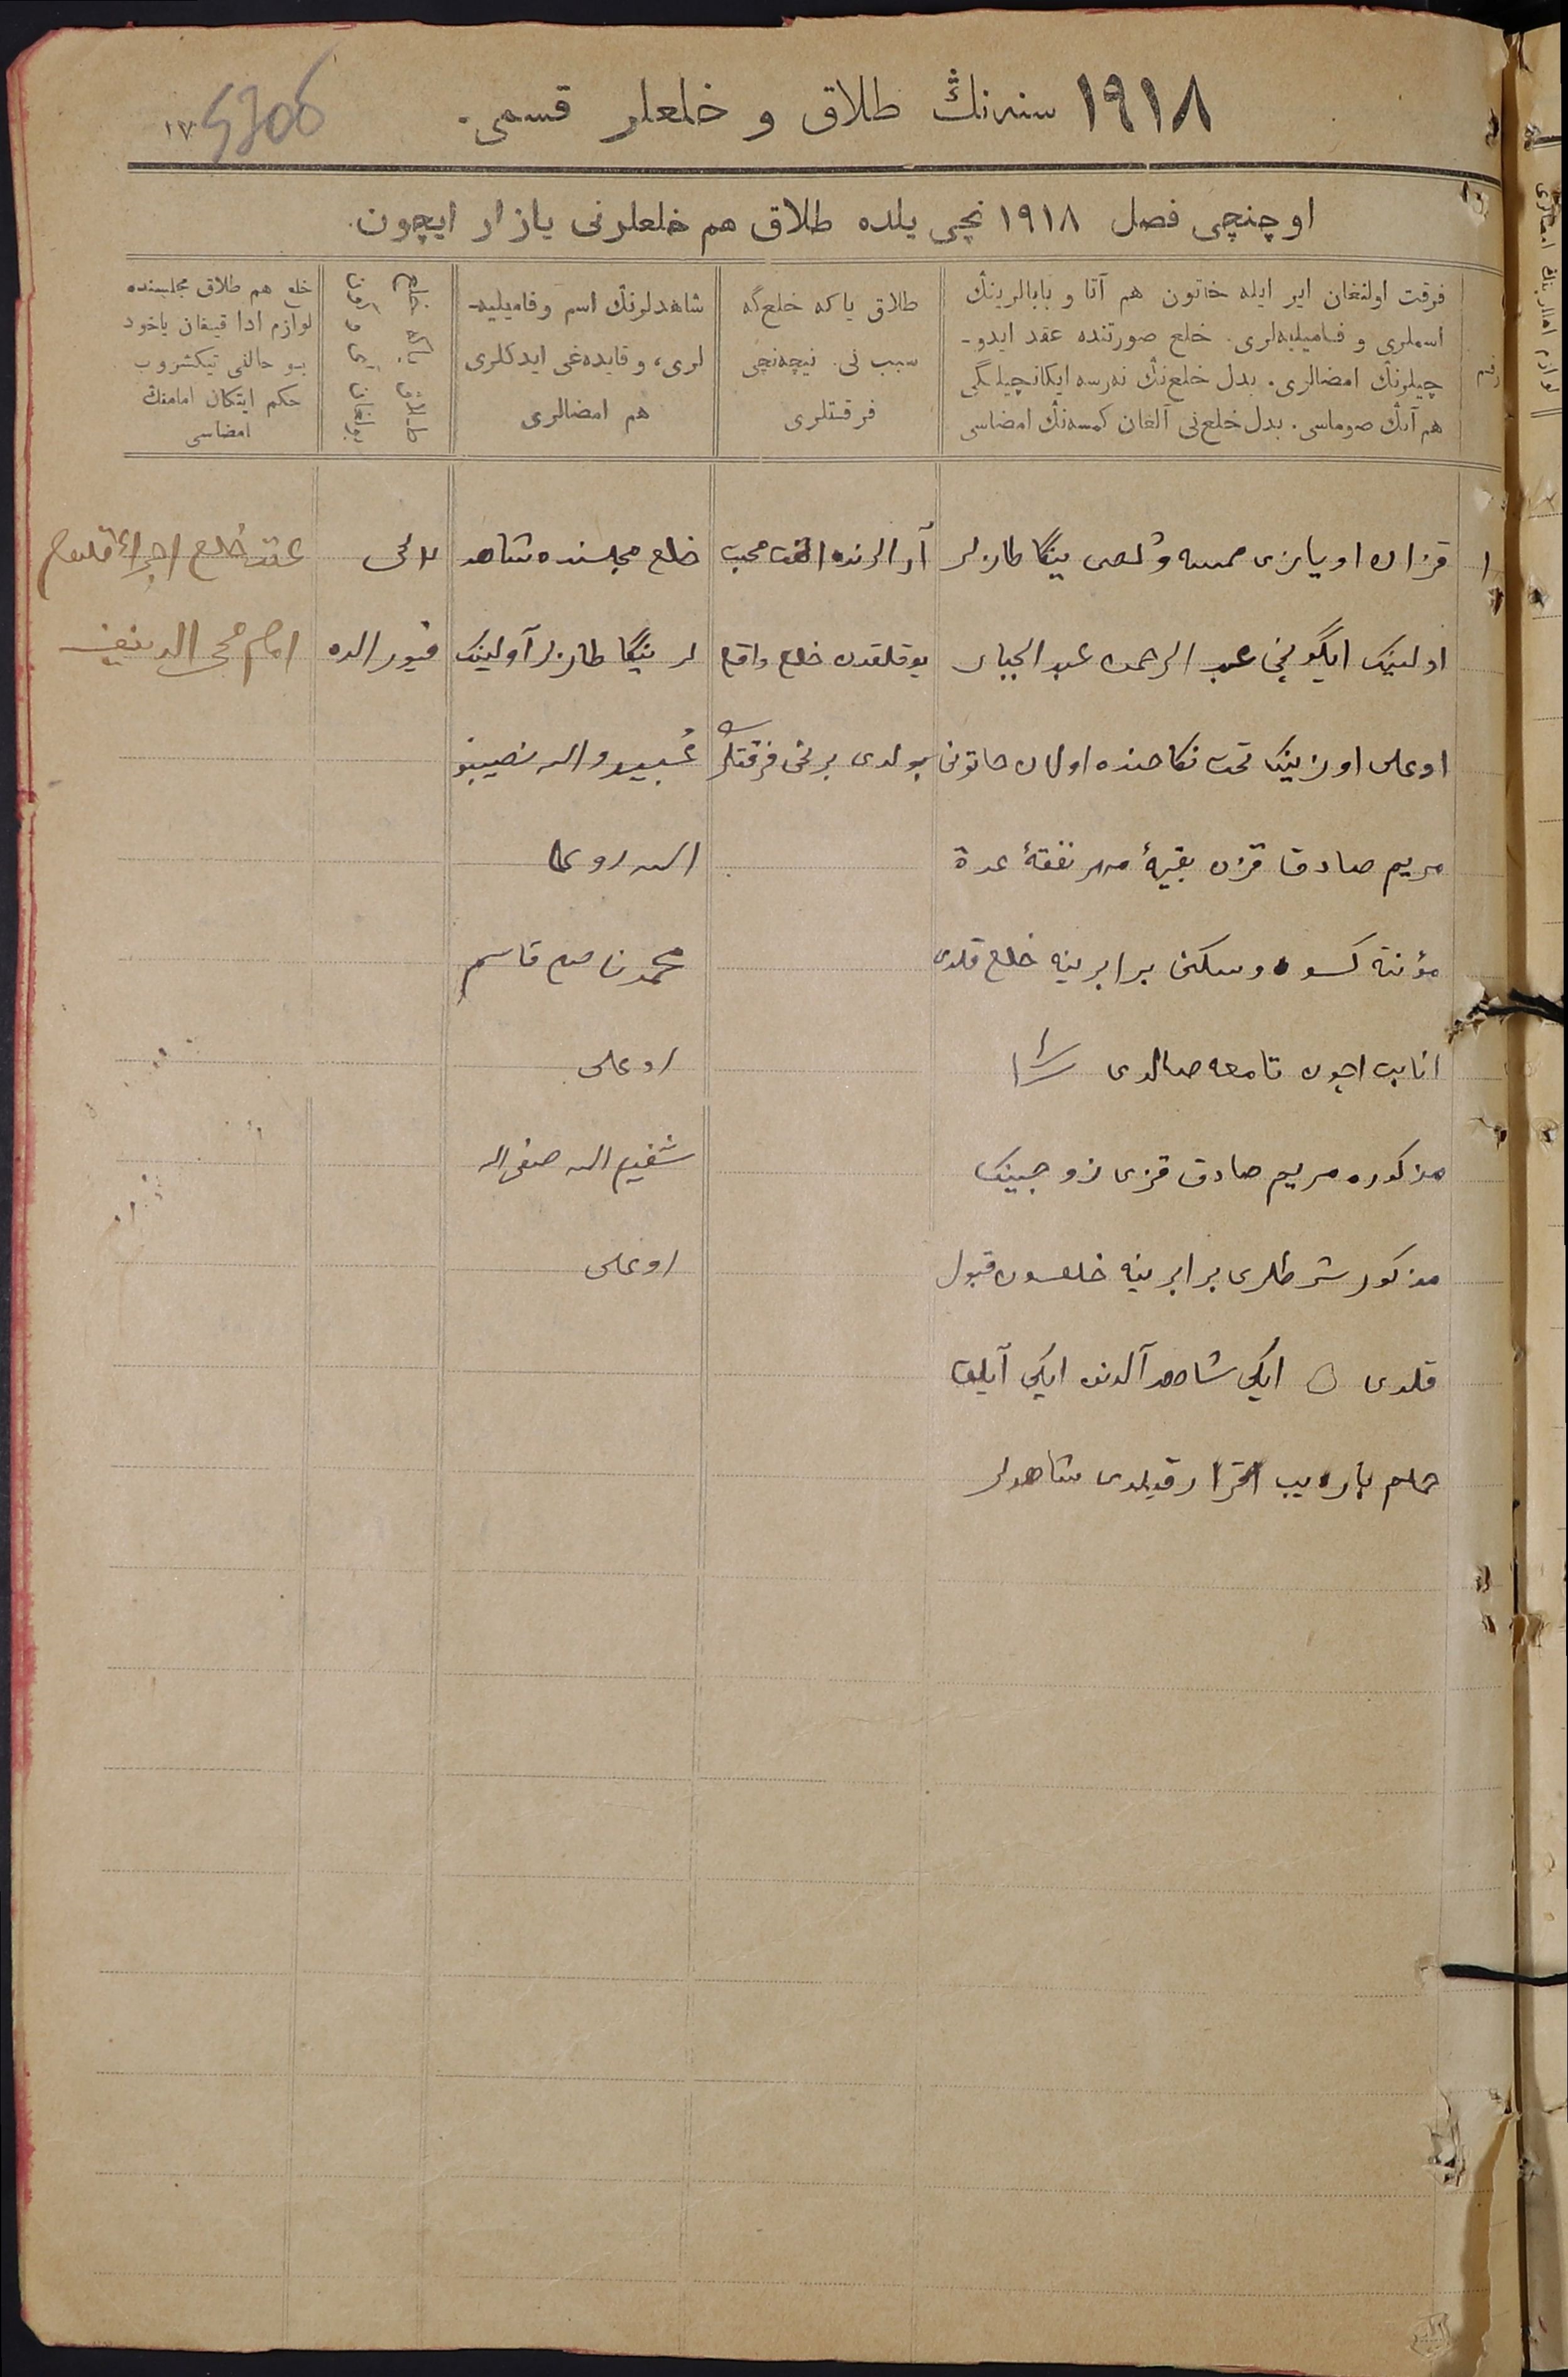 ١٩١٨ سنه‌نڭ طلاق و خلعلر قسمی.
١٧
5306
اوچنچی فصل ١٩١٨ نچی یلده طلاق هم خلعلرنی یازار ایچون.
رقم
فرقت اولنغان ایر ایله خاتون هم آتا و بابالرینڭ
اسملری و فامیلیه‌لری. خلع صورتنده عقد ایدو-
چیلرنڭ امضالری. بدل خلع‌نڭ نه‌رسه ایکانچیلگی
هم آنڭ صوماسی. بدل خلع‌نی آلغان کمسه‌نڭ امضاسی
طلاق یا که خلع‌گه
سبب نی. نیچه‌نچی
فرقتلری
شاهدلرنڭ اسم و فامیلیه-
لری، و قایده‌غی ایدکلری
هم امضالری
خلع یاکه طلاق
خلع هم طلاق مجلسنده
لوازم ادا قیلغان یاخود
بو حالنی تیکشروب
حکم ایتکان امامنڭ
امضاسی
١
قزان اویازی ینگا طازلر
اولینک ایکونچی عبد الرحمن عبد الجبار
اوغلی اوزینک تحت نکاحنده اولان خاتونی
مریم صادق قزی بقیۀ مهر نفقۀ عدة
مؤنته کسوه و سکنی برابرینه خلع قلدی
مذکوره مریم صادق قزی زوجینک
مذکور شرطلری برابرینه خلعسون قبول
قلدی ایکی شاهد آلدنده ایکی آیلق
اقرار قیلدی شاهدلر
آرالرنده الفت محبت
یوقلقدن خلع واقع
بولدی برنچی فرقتلری
خلع مجلسنده شاهد
لر ینگا طازلر آولینک
عبیدالله نصیب
الله اوغلی
محمد قاسم
اوغلی
شفیع الله صفی الله
اوغلی
فیورالده
عقد خلع اجراء قلدم
امام محی الدینف